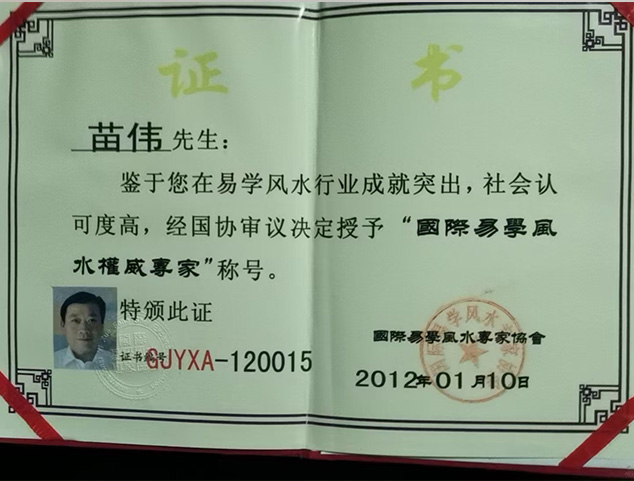 证 书
苗伟先生：
鉴于您在易学风水行业成就突出，社会认
可度高，经国协审议决定授予“國際易學風
水權威專家”称号。
特颁此证
证书编号GJYXA-120015
國際易學風水專家協會
2012年01月10日